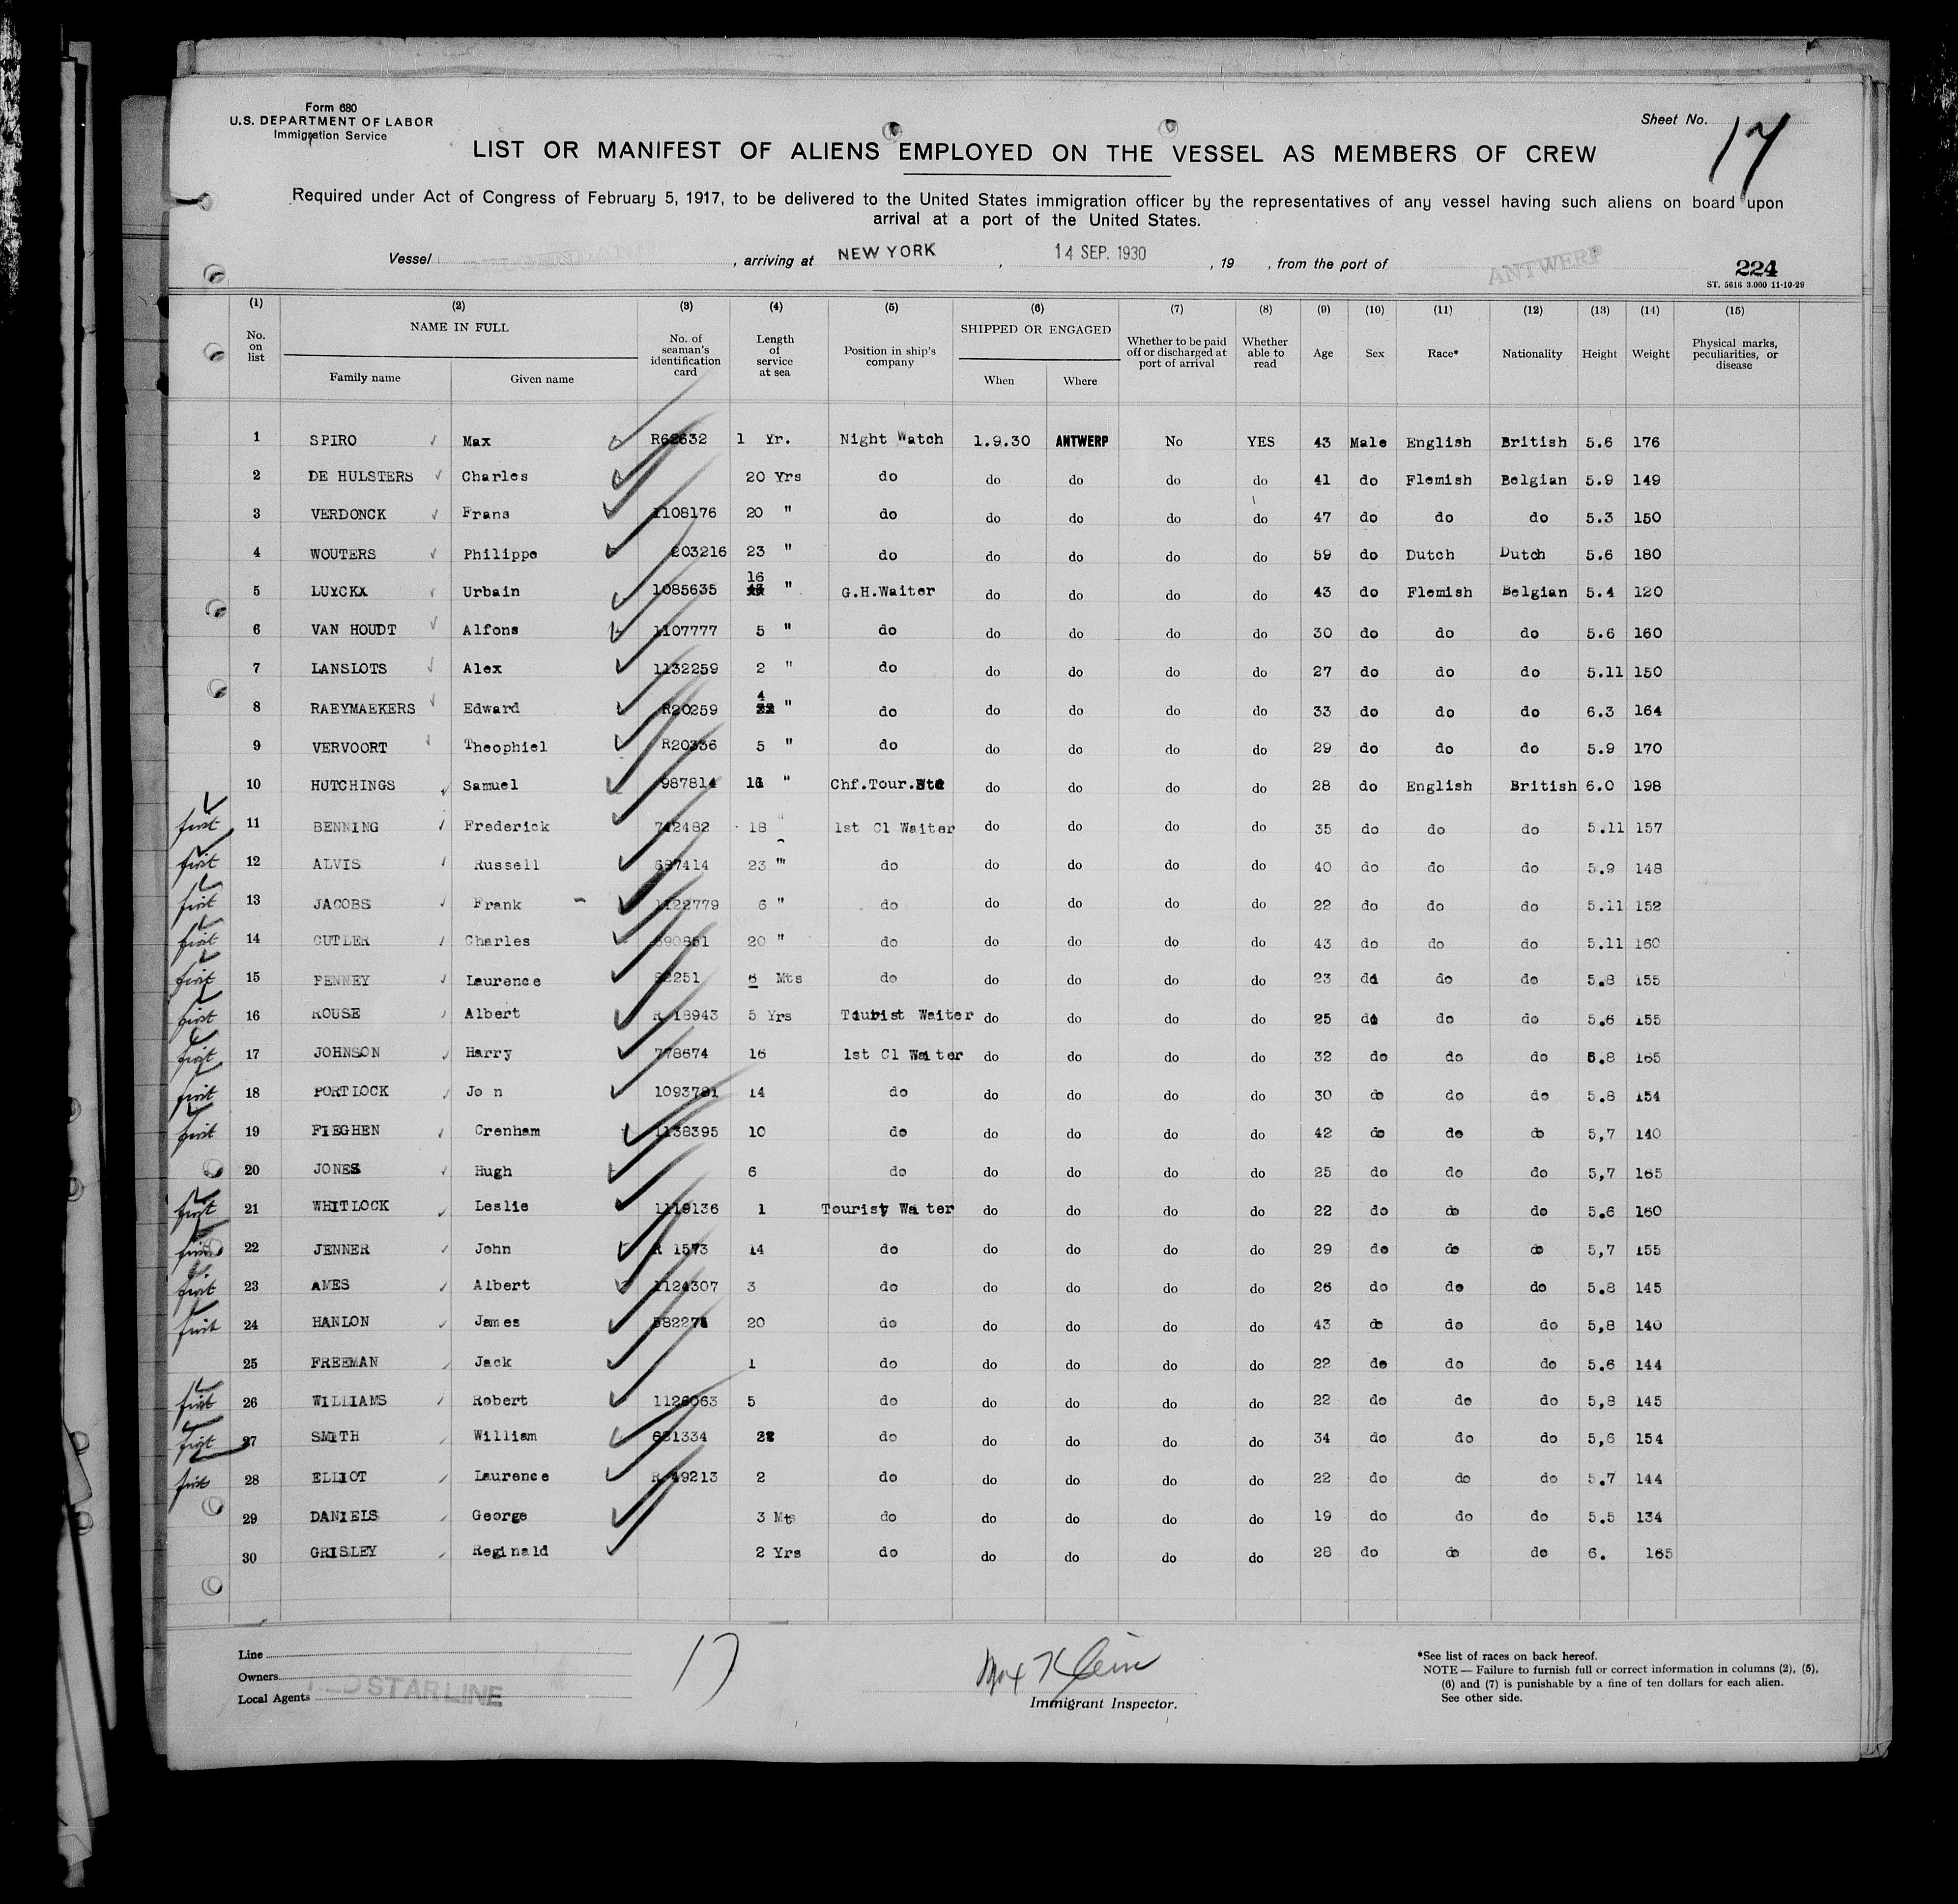 Form 680
U.S. DEPARTMENT OF LABOR
Immigration Service
Sheet No. 17
LIST OR MANIFEST OF ALIENS EMPLOYED ON THE VESSEL AS MEMBERS OF CREW
Required under Act of Congress of February 5, 1917, to be delivered to the United States immigration officer by the representatives of any vessel having such aliens on board upon
arrival at a port of the United States.
Vessel , arriving at NEW YORK , 14 SEP. 1930 , 19 , from the port of ANTWERP
224
ST. 5616 3.000 11-10-29
(1) (2) (3) (4) (5) (6) (7) (8) (9) (10) (11) (12) (13) (14) (15)
No. on list NAME IN FULL Family name Given name No. of seaman's identification card Length of service at sea Position in ship's company SHIPPED OR ENGAGED When Where Whether to be paid off or discharged at port of arrival Whether able to read Age Sex Race* Nationality Height Weight Physical marks, peculiarities, or disease
1 SPIRO Max R62632 1 Yr. Night Watch 1.9.30 ANTWERP No YES 43 Male English British 5.6 176
2 DE HULSTERS Charles 20 Yrs do do do do do 41 do Flemish Belgian 5.9 149
3 VERDONCK Frans 1108176 20 " do do do do do 47 do do do 5.3 150
4 WOUTERS Philippe 203216 23 " do do do do do 59 do Dutch Dutch 5.6 180
5 LUYCKX Urbain 1085635 16 " G.H.Waiter do do do do 43 do Flemish Belgian 5.4 120
6 VAN HOUDT Alfons 1107777 5 " do do do do do 30 do do do 5.6 160
7 LANSLOTS Alex 1132259 2 " do do do do do 27 do do do 5.11 150
8 RAEYMAEKERS Edward R20259 4 " do do do do do 33 do do do 6.3 164
9 VERVOORT Theophiel R20336 5 " do do do do do 29 do do do 5.9 170
10 HUTCHINGS Samuel 987814 " Chf.Tour. do do do do 28 do English British 6.0 198
first 11 BENNING Frederick 742482 18 " 1st Cl Waiter do do do do 35 do do do 5.11 157
first 12 ALVIS Russell 687414 23 " do do do do do 40 do do do 5.9 148
first 13 JACOBS Frank 1122779 6 " do do do do do 22 do do do 5.11 152
first 14 CUTLER Charles 20 " do do do do do 43 do do do 5.11 160
first 15 PENNEY Laurence 6 Mts do do do do do 23 do do do 5.8 155
first 16 ROUSE Albert R 18943 5 Yrs Tourist Waiter do do do do 25 do do do 5.6 155
first 17 JOHNSON Harry 778674 16 1st Cl Waiter do do do do 32 do do do 5.8 165
first 18 PORTLOCK Jo n 1093781 14 do do do do do 30 do do do 5.8 154
first 19 FIEGHEN Crenham 1138395 10 do do do do do 42 do do do 5,7 140
20 JONES Hugh 6 do do do do do 25 do do do 5,7 165
first 21 WHITLOCK Leslie 1119136 1 Tourist Wa ter do do do do 22 do do do 5.6 160
22 JENNER John R 1573 14 do do do do do 29 do do do 5,7 155
first 23 AMES Albert 1124307 3 do do do do do 26 do do do 5.8 145
first 24 HANLON James 20 do do do do do 43 do do do 5,8 140
25 FREEMAN Jack 1 do do do do do 22 do do do 5.6 144
first 26 WILLIAMS Robert 1126063 5 do do do do do 22 do do do 5,8 145
first 27 SMITH William 22 do do do do do 34 do do do 5,6 154
first 28 ELLIOT Laurence R 49213 2 do do do do do 22 do do do 5.7 144
29 DANIELS George 3 Mts do do do do do 19 do do do 5.5 134
30 GRISLEY Reginald 2 Yrs do do do do do 28 do do do 6. 165
Line
Owners
Local Agents RED STAR LINE
17
Max Klein
Immigrant Inspector.
*See list of races on back hereof.
NOTE — Failure to furnish full or correct information in columns (2), (5),
(6) and (7) is punishable by a fine of ten dollars for each alien.
See other side.